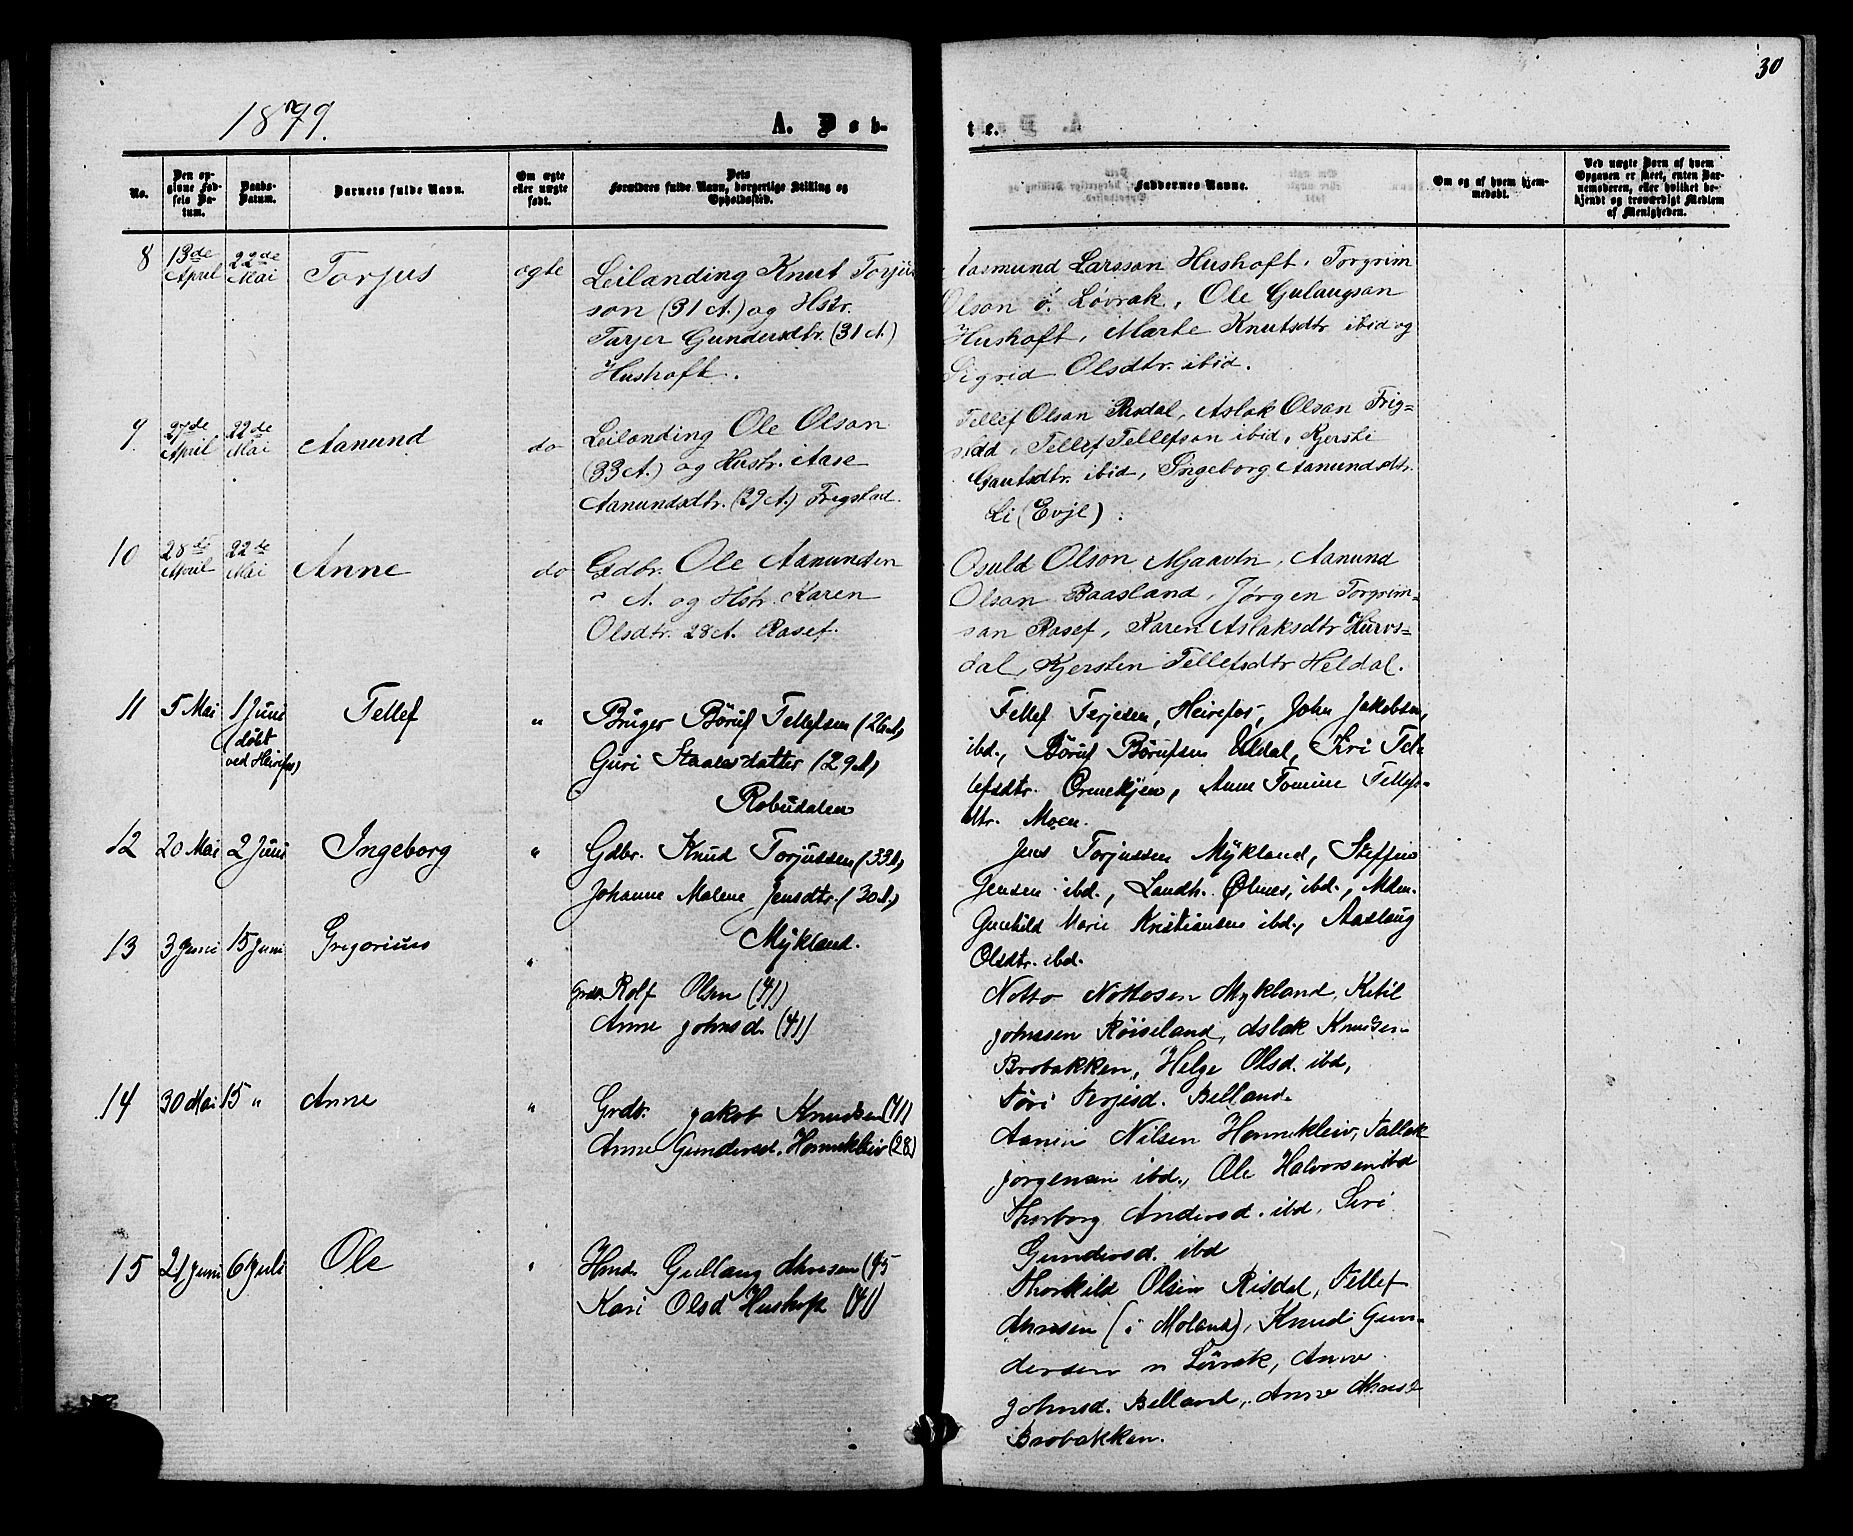 30
1879.
A. Døb-
te.
No.
Den op-
givne Fød-
sels Da-
tum.
Daabs-
Datum.
Barnets fulde Navn.
Om ægte
eller uægte
født.
Dets
Forældres fulde Navn, borgerlige Stilling og
Opholdssted.
Faddernes Navne.
Om og af hvem hjem-
medøbt.
Ved uægte Børn af hvem
Opgaven er skeet, enten Bar-
nemoderen, eller hvilket be-
kjendt og troværdigt Medlem
af Menigheden.
8
13de
April
22de
Mai
Torjus
ægte
Leilænding Knut Torjus
son (31 A.) og Hstr.
Tarjer Gundersdtr. (31 A)
Hushoft.
Aasmund Larsson Hushoft, Torgrim
Olson ø. Løvrak, Ole Gulaugsan
Hushoft, Marte Knutsdtr ibid og
Sigrid Olsdtr. ibid.
9
27de
April
22de
Mai
Aanund
do
Leilanding Ole Olson
(33 A.) og Hustr. Aase
Aanundsdtr. (29 A.) Frigstad.
Tellef Olsan Risdal, Aslak Olsan Frig=
stad, Tellef Tellefson ibid, Kjersti
Gautsdtr. ibid, Ingeborg Aanundsdtr.
Li (Evje).
10
28de
April
22de
Mai
Anne
do
Gdbr. Ole Aanundsen
" A. og Hstr. Karen
Olsdtr. 28 A. Rasef.
Osuld Olson Mjaavtn, Aanund
Olsan Baasland, Jørgen Torgrim=
san Rasef, Karen Aslaksdtr Hurvs=
dal, Kjersten Tellefsdtr Heldal.
11
5 Mai
1 Juni
(døbt
ved Heirefos)
Tellef
"
Bruger Børuf Tellefsen (26 A)
Guri Staalesdatter (29 A)
Robudalen
Tellef Terjesen, Heirefos, John Jakobsen,
ibd., Børuf Børufsen Uldal, Siri Tel-
lefsdtr. Ormekjen, Anne Tomine Tellefs-
dtr. Moen.
12
20 Mai
2 Juni
Ingeborg
"
Gdbr. Knud Torjussen (33 A)
Johanne Malene Jensdtr. (30 A)
Mykland.
Jens Torjussen Mykland, Steffen
Jensen ibd., Landh. Ølnes, ibd., Mdm.
Gunhild Marie Kristiansen ibd., Aaslaug
Olsdtr. ibd.
13
3 Juni
15 Juni
Gregorius
"
Grdbr. Rolf Olsen (41)
Anne Johnsd. (41)
Notto Nottosen Mykland, Ketil
Johnsen Røiseland, Aslak Knudsen
Brobakken, Helge Olsd. ibd,
Tøri Terjesd. Belland.
14
30 Mai
15 "
Anne
"
Grdbr. Jakob Knudsen (41)
Anne Gundersd. Honnekleiv (28)
Aanen Nilsen Honnekleiv, Tallak
Jørgensen ibd., Ole Halvorsen ibd
Thorborg Andersd. ibd, Siri
Gundersd. ibd
15
21 Juni
6 Juli
Ole
"
Hmd. Gullaug (45
Kari Olsd Hushoft (41)
Thorkild Olsen Risdal, Tellef
(i Moland), Knud Gun-
dersen n Løvrak, Anne
Johnsd. Belland, Anne
Brobakken.